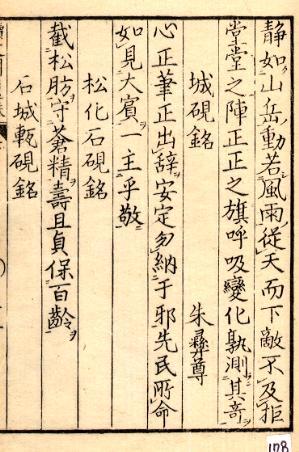 静如山岳動若風雨從天而下敵不及拒
堂堂之陣正正之旗呼吸變化孰測其奇
城硯銘 朱彝尊
心正筆正出辭安定勿納于邪先民所命
如見大賓一主乎敬
松化石硯銘
截松肪守蒼精壽且貞保百齡
石城甎硯銘
108